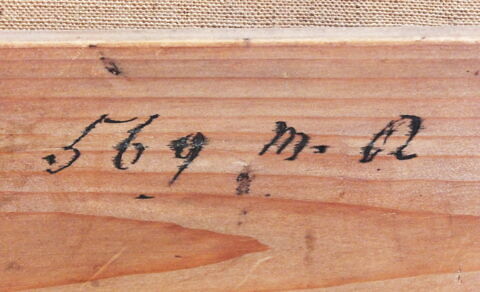 569 m. R